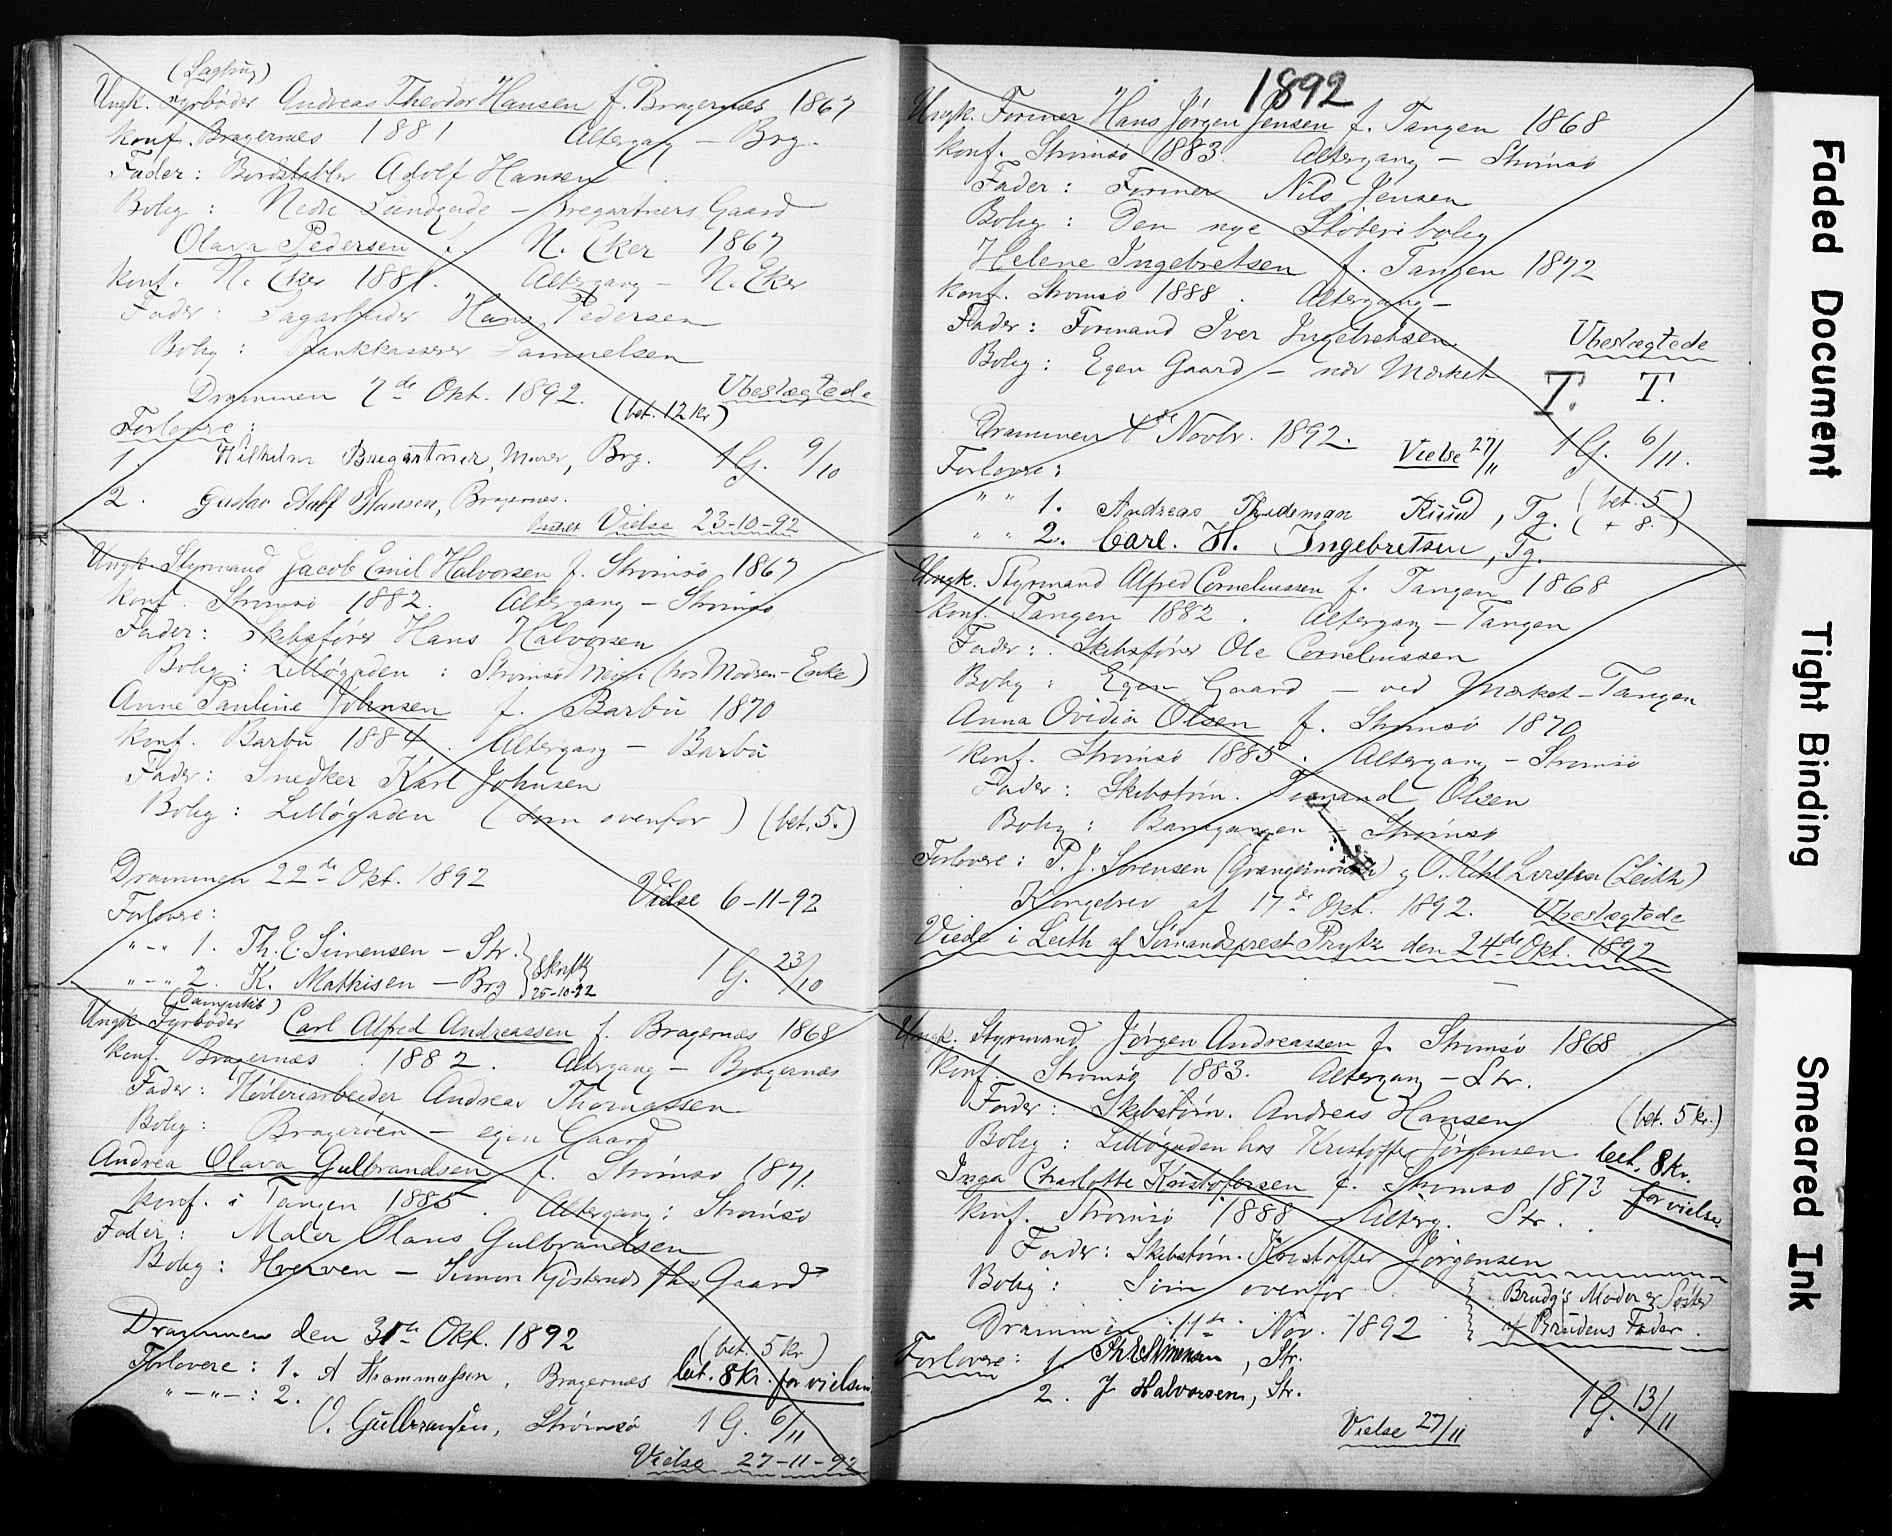 (Lagbrug)
Ungk. Fyrbøder Andreas Theodor Hansen f. Bragernæs 1867
Konf. Bragernæs 1881 Altergang – Brg.
Fader: Bordstabler Adolf Hansen
Bolig: Nedre – Bregartners Gaard
Olava Pedersen f. N. Eker 1867
Konf. N. Eker 1881. Altergang – N. Eker
Fader: Sagarbeider Hans Pedersen
Bolig: Bankkasserer Samuelsen
Drammen 7de Okt. 1892. Ubeslægtede
Forlovere: (bet. 12 kr)
1. Wilhelm Bregartner, Murer, Brg. 1 G. 9/10
2. Gustav Adolf Hansen, Bragernes.
Vielse 23-10-92
Ungk. Styrmand Jacob Emil Halvorsen f. Strømsø 1867
Konf. Strømsø 1882. Altergang – Strømsø
Fader: Skibsfører Hans Halvorsen
Bolig: Lilløgaden: Strømsø (hos Modren – Enke)
Anne Pauline Johnsen f. Barbu 1870
Konf. Barbu 1884. Altergang – Barbu
Fader: Snedker Karl Johnsen
Bolig: Lilløgaden (som ovenfor) (bet. 5.)
Drammen 22de Okt. 1892
Vielse 6-11-92
Forlovere:
" – " 1. Th. E. Simensen – Str.
" – " 2. K. Mathisen – Brg } skriftl 25-10-92 1 G. 23/10
(Dampskib)
Ungk. Fyrbøder Carl Alfred Andreassen f. Bragernæs 1868
Konf. Bragernæs 1882. Altergang – Bragernæs
Fader: Høvleriarbeider Andreas Thomassen
Bolig: Bragerøen – egen Gaard
Andrea Olava Gulbrandsen f. Strømsø 1871.
Konf. i Tangen 1885. Altergang: Strømsø
Fader: Maler Olaus Gulbrandsen
Bolig: Hverven – Simon Gaard
Drammen den 31te Okt. 1892 (bet. 5 kr)
Forlovere: 1. A Thommassen, Bragernæs bet. 8 kr. for vielsen
" – " – : 2. O. Gulbransen, Strømsø 1 G. 6/11
Vielse 27-11-92
1892
Ungk. Former Hans Jørgen Jensen f. Tangen 1868
Konf. Strømsø 1883. Altergang – Strømsø
Fader: Former Nils Jensen
Bolig: Den nye Støberibolig
Helene Ingebretsen f. Tangen 1872
Konf. Strømsø 1888. Altergang –
Fader: Formand Iver Ingebretsen Ubeslægtede
Bolig: Egen Gaard – når Market T. T.
Drammen 4de Novbr. 1892. Vielse 27/11 1 G. 6/11.
Forlovere:
" " 1. Andreas Thideman Ruud, Tg. (bet. 5)
" " 2. Carl. H. Ingebretsen, Tg. ( + 8. )
Ungk. Styrmand Alfred Corneliussen f. Tangen 1868
Konf. Tangen 1882. Altergang – Tangen
Fader: Skibsfører Ole Corneliussen
Bolig: Egen Gaard – ved Market – Tangen
Anna Ovidia Olsen f. Strømsø 1870
Konf. Strømsø 1885. Altergang – Strømsø
Fader: Skibstøm. Olsen
Bolig: – Strømsø
Forlovere: P. J. Sørensen (Grangemouth) g O. Larssen (Leith)
Kongebrev af 17de Okt. 1892. Ubeslægtede
Viede i Leith af Sømandsprest Prytz den 24de Okt. 1892
Ungk. Styrmand Jørgen Andreassen f. Strømsø 1868
Konf. Strømsø 1883. Altergang – Str.
Fader: Skibstøm. Andreas Hansen (bet. 5 kr.)
Bolig: Lilløgaden hos Kristoffer Jørgensen bet. 8 kr.
Inga Charlotte Kristofersen f. Strømsø 1873 for vielse
Konf. Strømsø 1888 – Alterg. Str.
Fader: Skibstøm. Kristoffer Jørgensen
Bolig: Som ovenfor
Brudg's Moder er Søster
af Brudens Fader.
Drammen 11te Nov. 1892
Forlovere: 1. Th E Simensen, Str.
2. J Halvorsen, Str. 1 G. 13/11
Vielse 27/11
Faded Document
Tight Binding
Smeared Ink